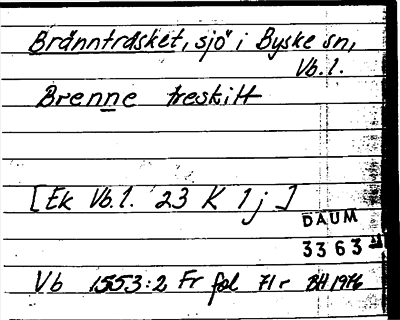 Brännträsket, sjö i Byske sn,
Vb.l.
Brenne treskitt
[Ek Vb.l. 23 K 1 j ]
DAUM
3363
Vb 1553:2 Fr fol 71 r BH 1976